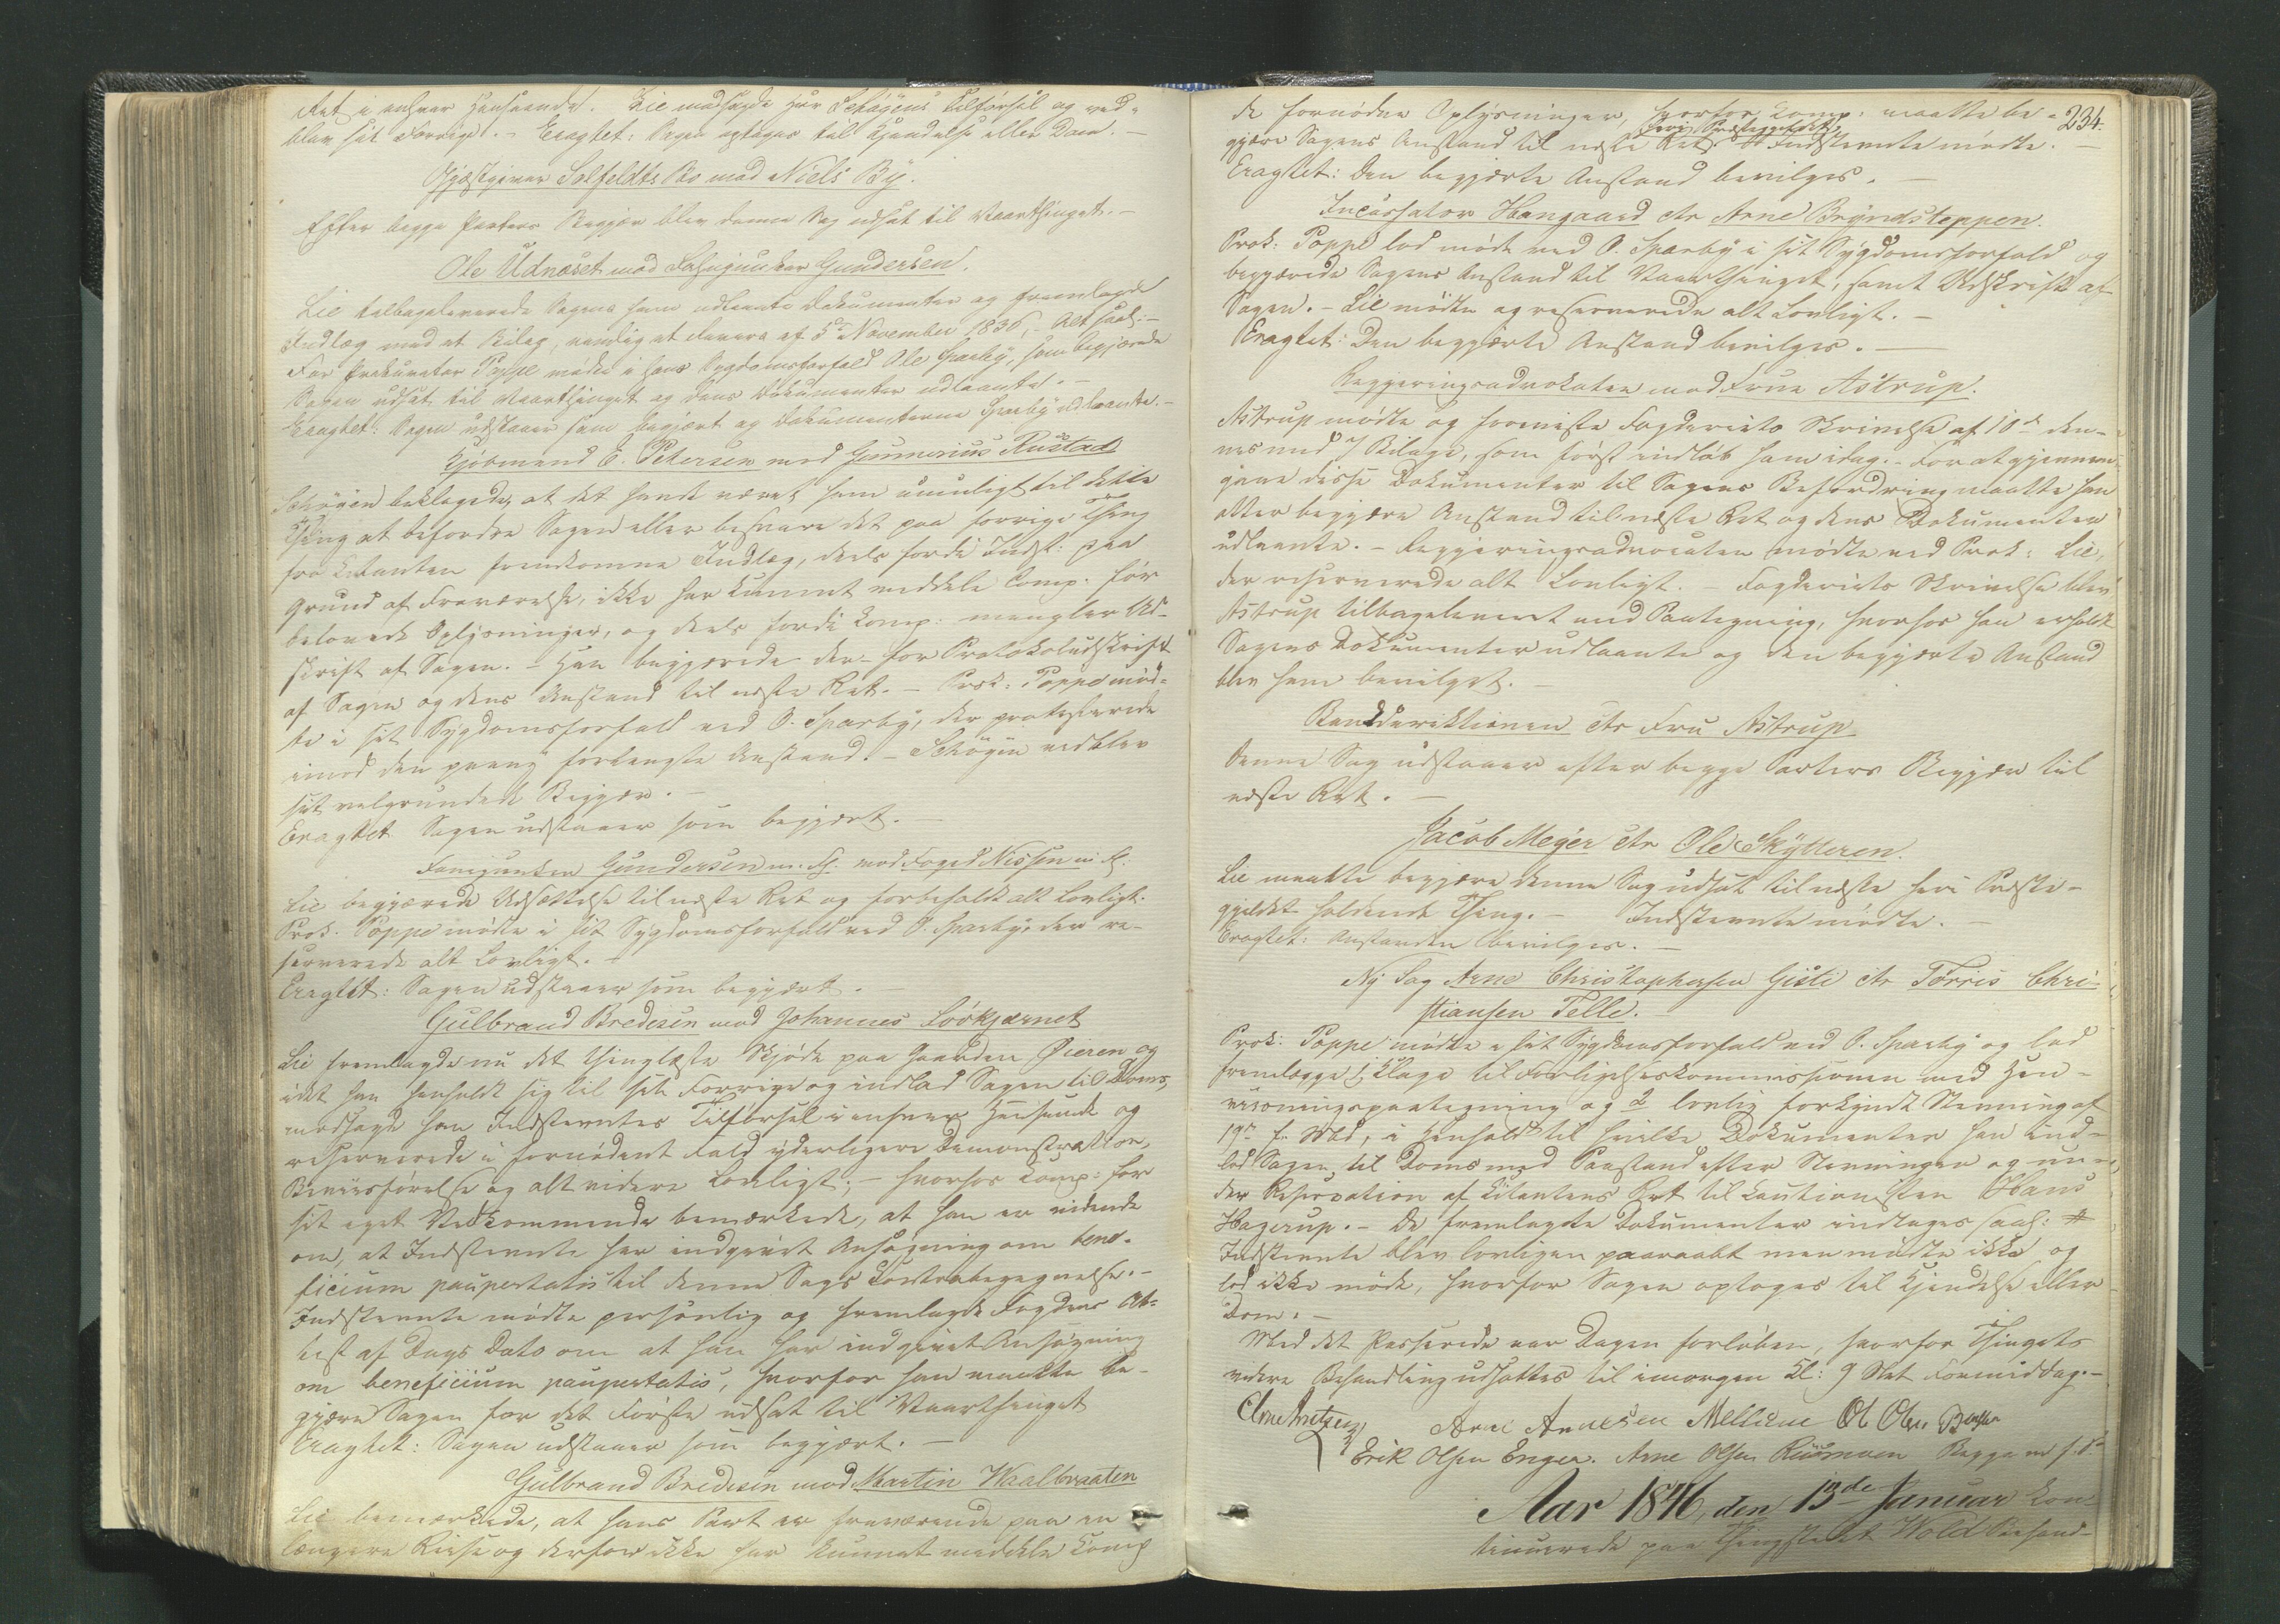 det i enhver Henseende. Lie modsagde Hr Schøÿens Tilførsel og ved-
blev sit Forrige. – Eragtet: Sagen optages til Kjendelse eller Dom. –
Gjæstgiver Solfeldts Bo mod Niels Bÿ.
Efter begge Parters Begjær blev denne Sag udsat til Vaarthinget. –
Ole Udnæset mod Fahnejunker Gundersen.
Lie tilbageleverede Sagens ham udlaante Dokumenter og fremlagde
Indlæg med et Bilag, nemlig et Laane af 5te November 1836, – Alt saal: –
For Prokurator Poppe mødte i hans Sygdomsforfald Ole Sparbÿ, som begjærede
Sagen udsat til Vaarthinget og dens Dokumenter udlaante. –
Eragtet: Sagen udstaaer som begjært og Dokumenterne Sparbÿ udlaante. –
Kjøbmand E. Petersen mod Gunnerius Rustad
Schøÿen beklagede, at det havde været ham umuligt til dette
Thing at befordre Sagen eller besvare det paa forrige Thing
fra Citanten fremkomne Indlæg, deels fordi Indst: paa
Grund af Fraværelse, ikke har kunnet meddele Comp: før
belovede Oplysninger, og deels fordi Comp: mangler Ud-
skrift af Sagen. – Han begjærede der- for Protokoludskrift
af Sagen og dens Anstand til næste Ret. – Prok: Poppe mød-
te i sit Sygdomsforfald ved O. Sparbÿ, der protesterede
imod den paany forlangte Anstand. – Schøÿen vedblev
sit velgrundede Begjær. –
Eragtet Sagen udstaaer som begjært. –
Fanejunker Gundersen m. Fl. mod Foged Nissen m Fl.
Lie begjærede Udsættelse til næste Ret og forbeholdt alt Lovligt.
Prok. Poppe mødte i sit Sygdomsforfald ved O. Sparbÿ, der re-
serverede alt Lovligt. –
Eragtet: Sagen udstaaer som begjært. –
Gulbrand Bredesen mod Johannes Løvkjærnet
Lie fremlagde nu det thinglæste Skjøde paa Gaarden Øieren og
idet han henholdt sig til sit Forrige og indlod Sagen til Doms,
modsagde han Indstevntes Tilførsel i enhver Henseende og
reserverede i fornødent Fald yderligere Demonstration,
Beviisførelse og alt videre Lovligt; – hvorhos Comp: for
sit eget Vedkommende bemærkede, at han er vidende
om, at Indstevnte har indgivet Ansøgning om bene-
ficium paupertatis til denne Sags Contrabegegnelse. –
Indstevnte mødte personlig og fremlagde Fogdens At-
test af Dags Dato om at han har indgivet Ansøgning
om beneficium paupertatis, hvorfor han maatte be-
gjære Sagen for det Første udsat til Vaarthinget
Eragtet: Sagen udstaaer som begjært. –
Gulbrand Bredesen mod Martin Haalbraaten
Lie bemærkede, at hans Part er fraværende paa en
længere Reise og derfor ikke har kunnet meddele Comp
234.
de fornødne Oplysninger, hvorfor Comp: maatte be-
heri Præstegjeldet
gjære Sagens Anstand til næste Ret. # Indstevnte mødte. –
Eragtet: Den begjærte Anstand bevilges. –
Incassator Haagaard ctr Arne Brÿndsteppen.
Prok: Poppe lod møde ved O. Sparbÿ i sit Sygdomsforfald og
begjærede Sagens Anstand til Vaarthinget, samt Udskrift af
Sagen. – Lie mødte og reserverede alt Lovligt. –
Eragtet: Den begjærte Anstand bevilges. –
Regjeringsadvokaten mod Frue Astrup.
Astrup mødte og foreviste Fogderiets Skrivelse af 10de den-
nes med 7 Bilage, som først indløb ham idag. – For at gjennem-
gaae disse Dokumenter til Sagens Befordring maatte han
atter begjære Anstand til næste Ret og dens Dokumenter
udlaante. – Regjeringsadvocaten mødte ved Prok: Lie,
der reserverede alt Lovligt. – Fogderiets Skrivelse blev
Astrup tilbageleveret med Paategning, hvorhos han erholdt
Sagens Dokumenter udlaante og den begjærte Anstand
blev ham bevilget. –
Bankdirektionen ctr Fru Astrup
Denne Sag udstaaer efter begge Parters Begjær til
næste Ret. –
Jacob Meÿer ctr Ole Skÿtteren.
Lie maatte begjære denne Sag udsat til næste heri Præste-
gjeldet holdende Thing. – Indstevnte mødte. –
Eragtet: Anstanden bevilges. –
Ny Sag Arne Christophersen Gisti ctr Tørris Chri-
stiansen Telle. –
Prok: Poppe mødte i sit Sygdomsforfald ved O. Sparbÿ og lod
fremlægge 1, Klage til Forligelseskommissionen med Hen-
viisningspaategning og 2 lovlig forkyndt Stevning af
19de f. Md, i Henhold til hvilke Dokumenter han ind-
lod Sagen til Doms med Paastand efter Stevningen og un-
der Reservation af Citantens Ret til Cautionisten Hans
Hagerup. – De fremlagte Dokumenter indtages saal: #
Indstevnte blev lovligen paaraabt men mødte ikke og
lod ikke møde, hvorfor Sagen optages til Kjendelse eller
Dom. –
Med det Passerede var Dagen forløben, hvorfor Thingets
videre Behandling udsattes til imorgen Kl: 9 Slet Formiddag. –
Arne Arnesen Melliene Ol Olsen
Erik Olsen Enger. Arne Olsen Begge m. f. P.
Aar 1846, den 13de Januar kon-
tinuerede paa Thingstedet Wold